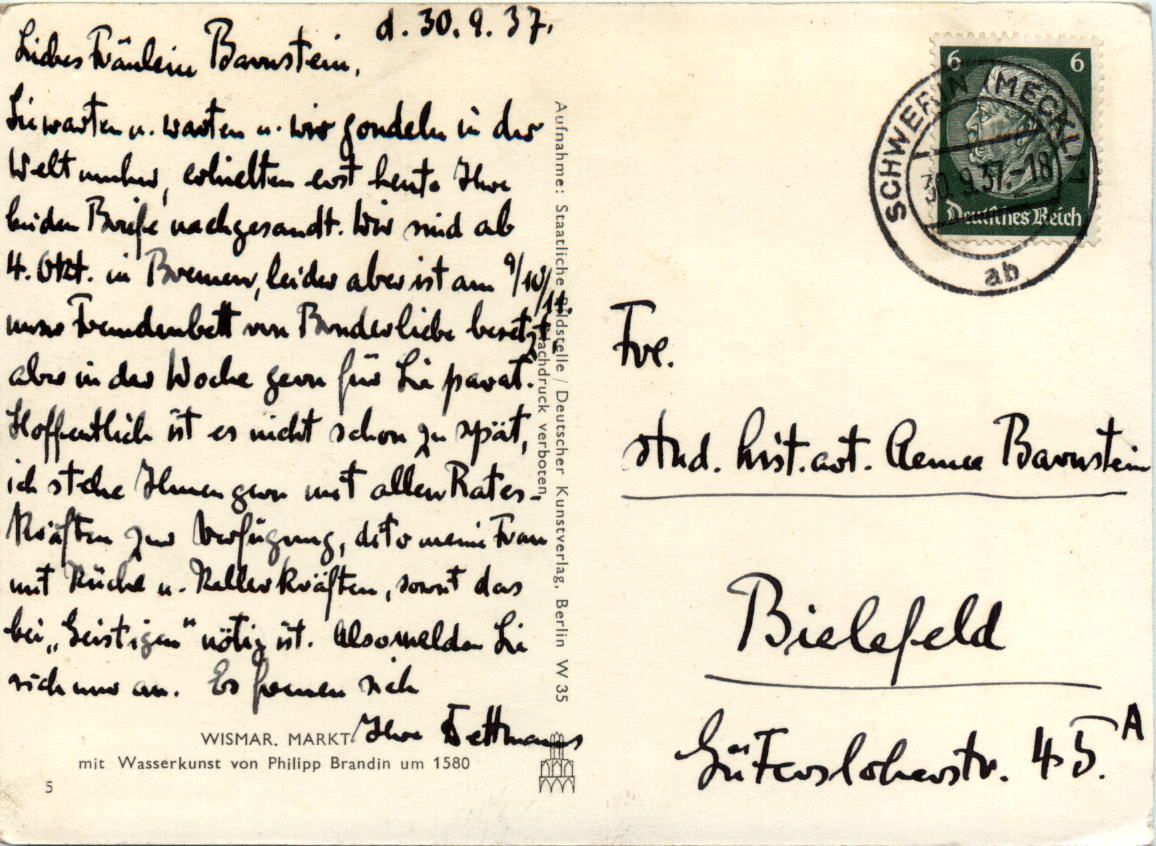 d. 30.9.37.
Liebes Fräulein Barnstein,
Sie warten u. warten u. wir gondeln in der
Welt umher, erhielten erst heute Ihre
beiden Briefe nachgesandt. Wir sind ab
4. Okt. in Bremen, leider aber ist am 9/10/11.
unser Fremdenbett von Bruderliebe besetzt,
aber in der Woche gern für Sie parat.
Hoffentlich ist es nicht schon zu spät,
ich stehe Ihnen gern mit allen Rates-
kräften zur Verfügung, dito meine Frau
mit Küche u. Kellerkräften, soweit das
bei „Geistigen“ nötig ist. Also melden Sie
sich nur an. Es freuen sich
Ihre Dettmanns
WISMAR. MARKT
mit Wasserkunst von Philipp Brandin um 1580
5
Aufnahme: Staatliche Bildstelle / Deutscher Kunstverlag, Berlin W 35
Nachdruck verboten
6 6
Deutsches Reich
SCHWERIN (MECKL) 1
30.9.37.-18
ab
Frl.
stud. hist. art. Aenne Barnstein
Bielefeld
Gütersloherstr. 45 A